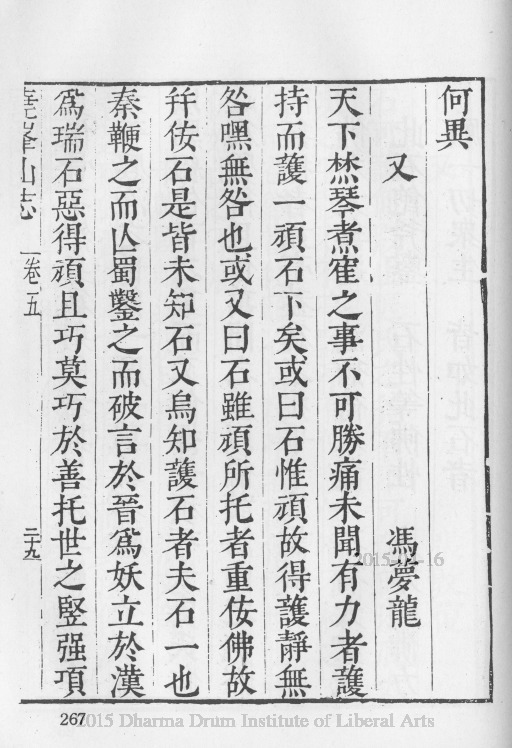 何異
又　馮夢龍
天下焚琴煮寉之事不可勝痛未聞有力者護
持而護一頑石下矣或曰石惟頑故得護靜無
咎嘿無咎也或又曰石雖頑所托者重仗佛故
幷仗石是皆未知石又烏知護石者夫石一也
秦鞭之而亾蜀鑿之而破言於晉爲妖立於漢
爲瑞石惡得頑且巧莫巧於善托世之竪强項
堯峯山志　卷五　二十九
267
2015 Dharma Drum Institute of Liberal Arts